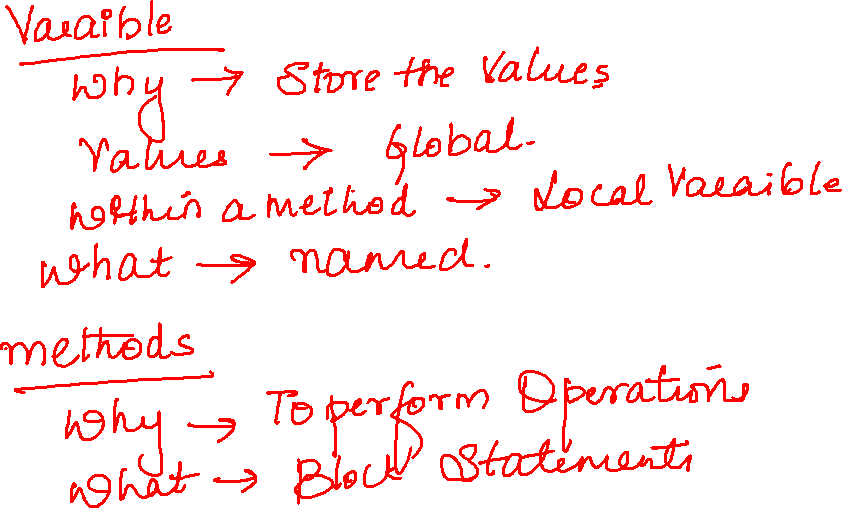 Varaible
Why → Store the Values
Values → Global.
Within a method → Local Varaible
What → named.
methods
Why → To perform Operations
What → Block Statements